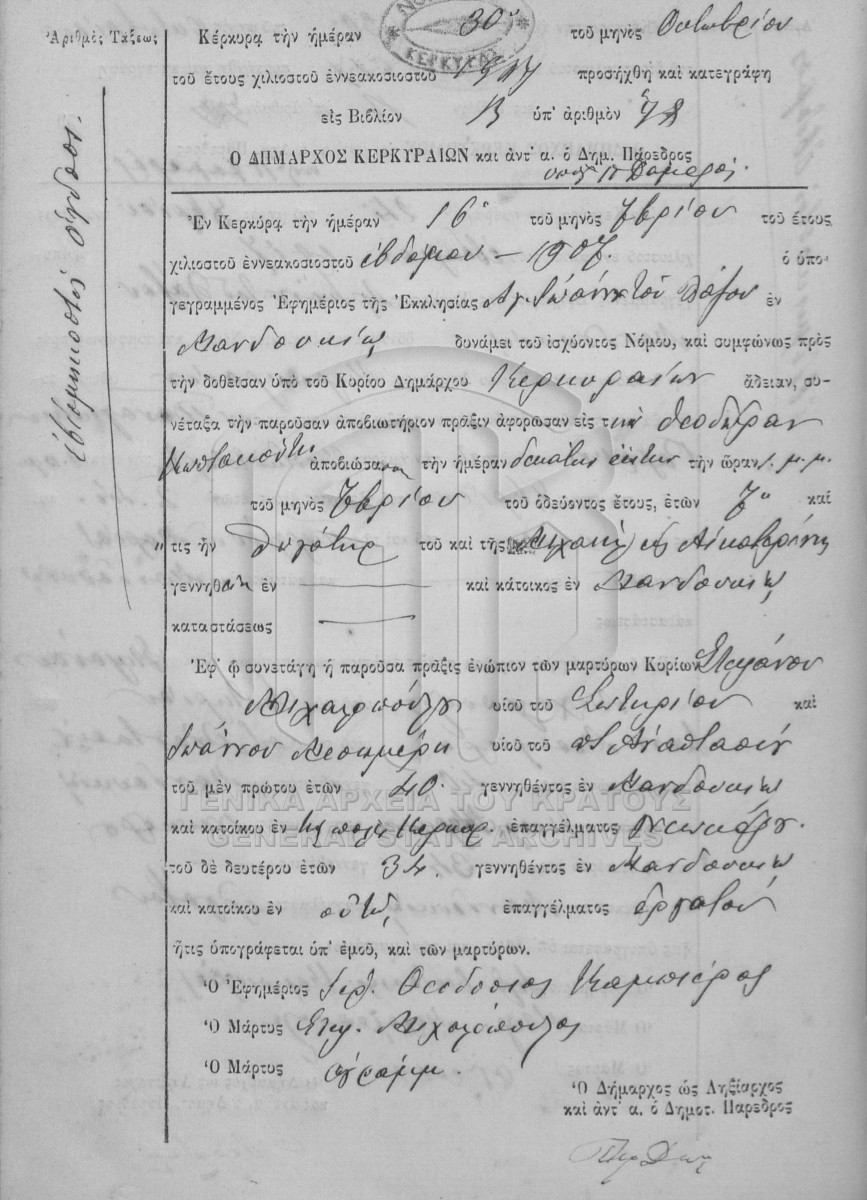 Ἀριθμὸς Τάξεως
Κέρκυρα τὴν ἡμέραν 30ὴ τοῦ μηνὸς Ὀκτωβρίου
τοῦ ἔτους χιλιοστοῦ ἐννεακοσιοστοῦ 1907 προσήχθη καὶ κατεγράφη
εἰς Βιβλίον Β ὑπ' ἀριθμὸν 78
Ο ΔΗΜΑΡΧΟΣ ΚΕΡΚΥΡΑΙΩΝ καὶ ἀντ' α. ὁ Δημ. Πάρεδρος
ΚΕΡΚΥΡΑΣ
ἑβδομηκοστὸς ὄγδοος.
Ἐν Κερκύρᾳ τὴν ἡμέραν 16ὴ τοῦ μηνὸς 7βρίου τοῦ ἔτους
χιλιοστοῦ ἐννεακοσιοστοῦ ἑβδόμου – 1907. ὁ ὑπο-
γεγραμμένος Ἐφημέριος τῆς Ἐκκλησίας Ἁγ. Ἰωάννου τοῦ ἐν
Μανδουκίῳ δυνάμει τοῦ ἰσχύοντος Νόμου, καὶ συμφώνως πρὸς
τὴν δοθεῖσαν ὑπὸ τοῦ Κυρίου Δημάρχου Κερκυραίων ἄδειαν, συ-
νέταξα τὴν παροῦσαν ἀποβιωτήριον πρᾶξιν ἀφορῶσαν εἰς τὴν Θεοδώραν
ἀποβιώσασαν τὴν ἡμέραν δεκάτην ἕκτην τὴν ὥραν 1. μ.μ.
τοῦ μηνὸς 7βρίου τοῦ ὁδεύοντος ἔτους, ἐτῶν 7 καὶ
τις ἦν θυγάτηρ τοῦ καὶ τῆς Μιχαὴλ κ Αἰκατερίνης
γεννηθεῖσα ἐν — καὶ κάτοικος ἐν Μανδουκίῳ
καταστάσεως —
Ἐφ' ᾧ συνετάγη ἡ παροῦσα πρᾶξις ἐνώπιον τῶν μαρτύρων Κυρίων Στυλιάνου
Μιχαλοπούλου υἱοῦ τοῦ Σωτηρίου καὶ
Ἰωάννου Μεσημέρη υἱοῦ τοῦ Ἀναστασίου
τοῦ μὲν πρώτου ἐτῶν 40 γεννηθέντος ἐν Μανδουκίῳ
ΓΕΝΙΚΑ ΑΡΧΕΙΑ ΤΟΥ ΚΡΑΤΟΥΣ
καὶ κατοίκου ἐν τῇ πόλει Κερκύρ. ἐπαγγέλματος
GENERAL STATE ARCHIVES
τοῦ δὲ δευτέρου ἐτῶν 34 γεννηθέντος ἐν Μανδουκίῳ
καὶ κατοίκου ἐν αὐτῷ ἐπαγγέλματος ἐργάτου
ἥτις ὑπογράφεται ὑπ' ἐμοῦ, καὶ τῶν μαρτύρων.
Ὁ Ἐφημέριος Ἱερ. Θεοδόσιος
Ὁ Μάρτυς Στυλ. Μιχαλόπουλος
Ὁ Μάρτυς ἀγράμμ.
Ὁ Δήμαρχος ὡς Ληξίαρχος
καὶ ἀντ' α. ὁ Δημοτ. Πάρεδρος